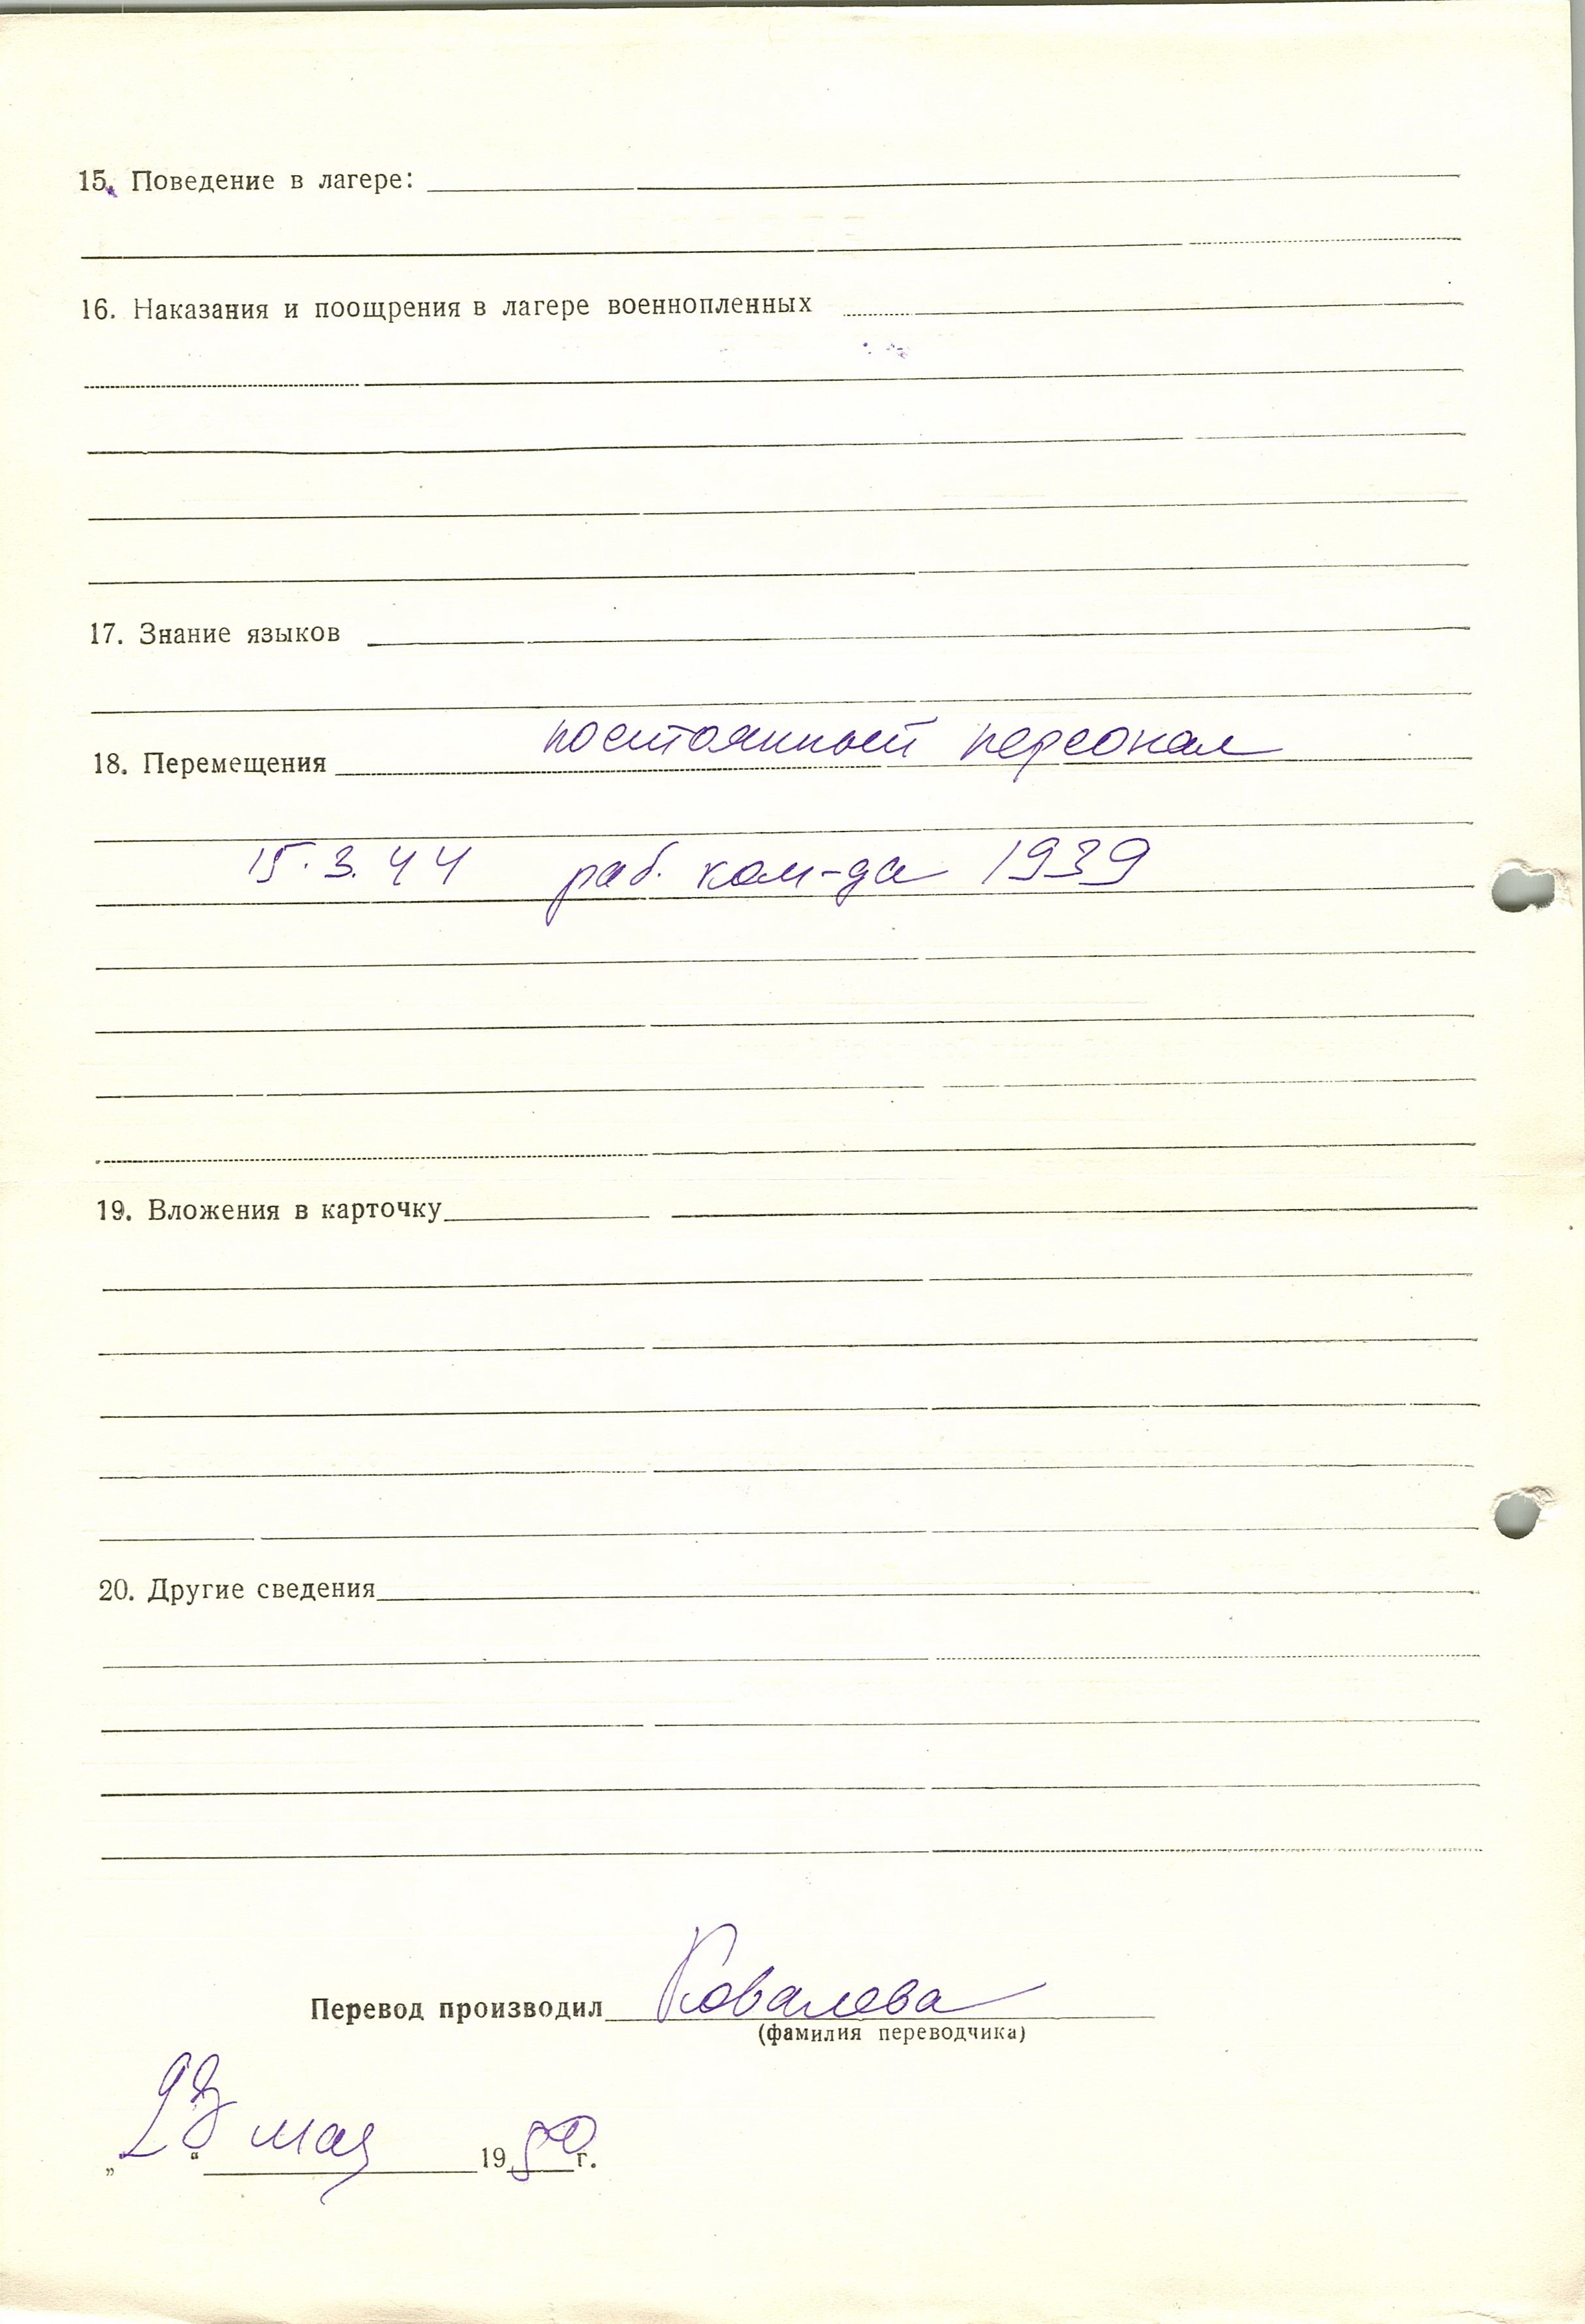 15. Поведение в лагере:
16. Наказания и поощрения в лагере военнопленных
17. Знание языков
18. Перемещения постоянный персонал
15.3.44 раб. ком-да 1939
19. Вложения в карточку
20. Другие сведения
Перевод производил Ковалева
(фамилия переводчика)
„ “ мая 1950 г.